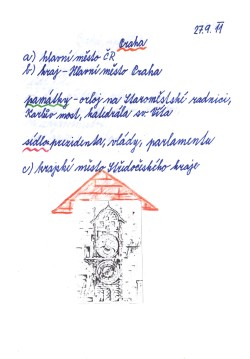 27.9. 11
Praha
a) hlavní město ČR
b) kraj - Hlavní město Praha
památky - orloj na Staroměstské radnici,
Karlův most, katedrála sv. Víta
sídlo prezidenta, vlády, parlamentu
c) krajské město Středočeského kraje